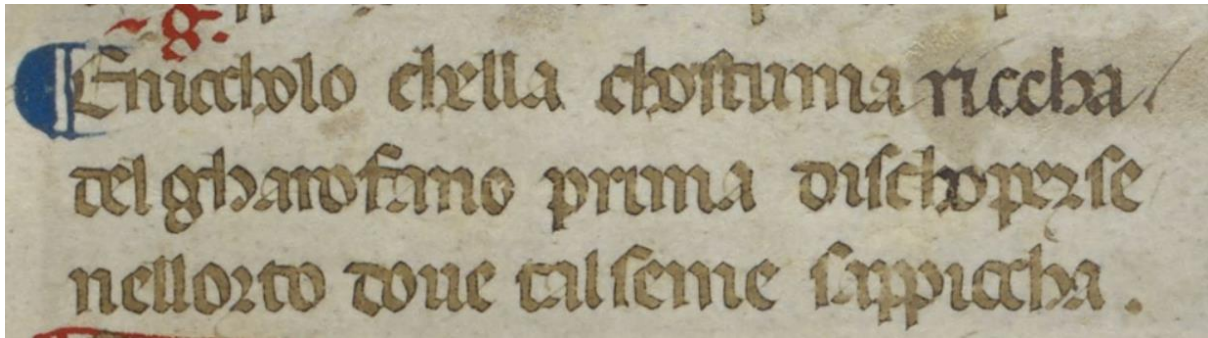 Eniccholo chella chostuma riccha
del gharofano prima dischoperse
nellorto doue tal seme sappiccha.